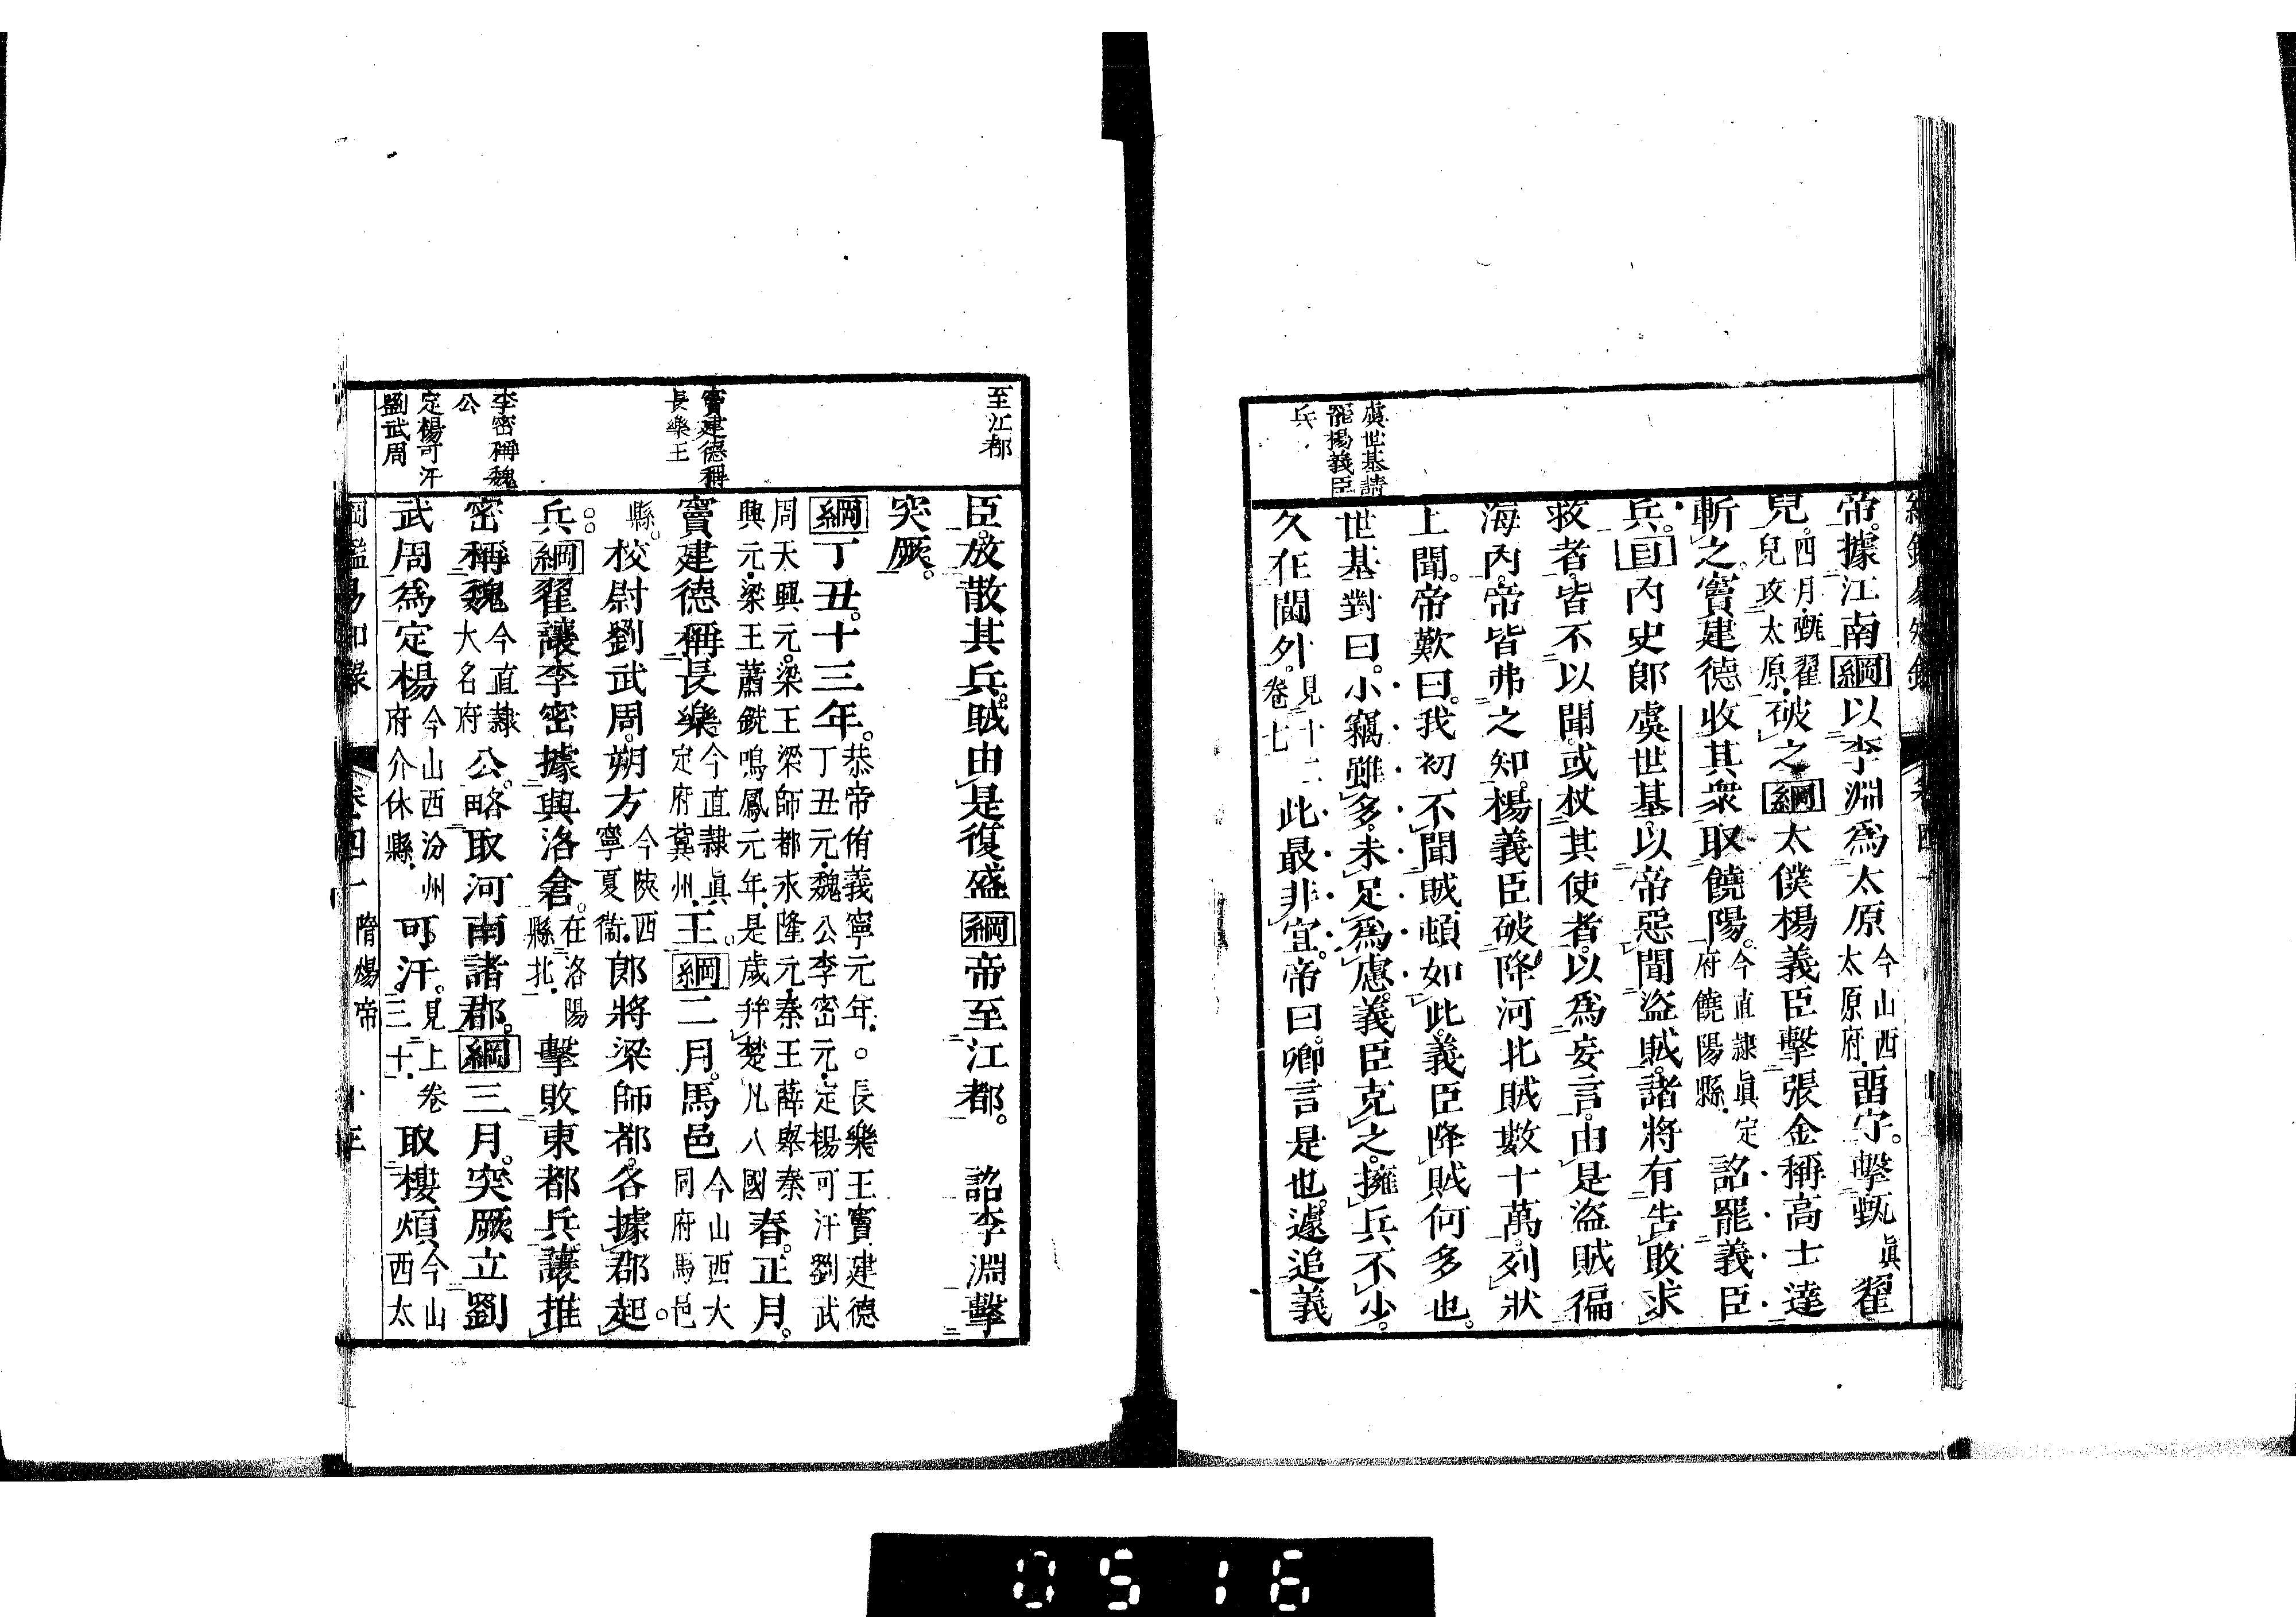 虞世基請
罷楊義臣
兵
帝。據江南綱以李淵爲太原今山西太原府留守。擊甄眞翟
兒。四月甄翟兒攻太原破之綱太僕楊義臣擊張金稱高士達
斬之。竇建德收其衆取饒陽。今直隸眞定府饒陽縣詔罷義臣
兵。目內史郞虞世基以帝惡聞盜賊。諸將有告敗求
救者。皆不以聞。或杖其使者。以爲妄言。由是盜賊徧
海內。帝皆弗之知。楊義臣破降河北賊數十萬。列狀
上聞。帝歎曰。我初不聞賊頓如此。義臣降賊何多也。
世基對曰。小竊雖多。未足爲慮。義臣克之。擁兵不少。
久在閫外。見十二卷七此最非宜。帝曰。卿言是也。遽追義
至江都
竇建德稱
長樂王
李密稱魏
公
定楊可汗
劉武周
臣。放散其兵。賊由是復盛綱帝至江都。 詔李淵擊
突厥。
綱丁丑。十三年。恭帝侑義寧元年。○長樂王竇建德丁丑元魏公李密元定楊可汗劉武
周天興元。梁王梁師都永隆元秦王薛擧秦興元梁王蕭銑鳴鳳元年是歲幷楚凡八國春。正月。
竇建德稱長樂今直隸眞定府冀州王。綱二月。馬邑今山西大同府馬邑
縣。校尉劉武周。朔方今陝西寧夏衞郞將梁師都。各據郡起
兵。綱翟讓李密據興洛倉。在洛陽縣北擊敗東都兵。讓推
密稱魏今直隸大名府公。略取河南諸郡。綱三月。突厥立劉
武周爲定楊今山西汾州府介休縣可汗。見上卷三十取樓煩今山西太
綱鑑易知錄 卷四一 隋煬帝